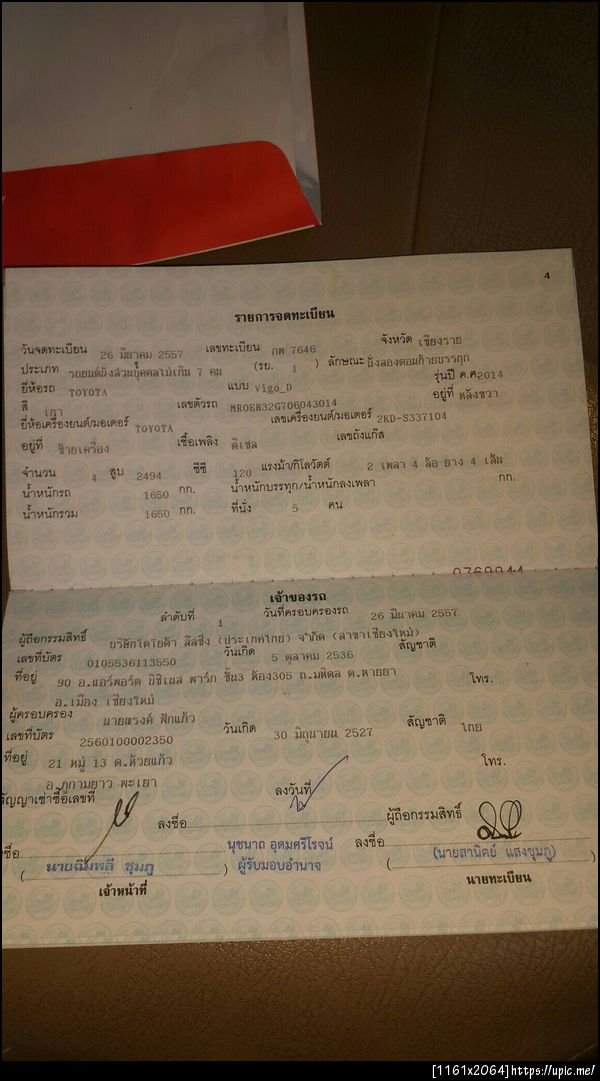 4
รายการจดทะเบียน
วันจดทะเบียน 26 มีนาคม 2557 เลขทะเบียน กพ 7646 จังหวัด เชียงราย
ประเภท รถยนต์นั่งส่วนบุคคลไม่เกิน 7 คน (รย. 1 ) ลักษณะ นั่งสองตอนท้ายบรรทุก
ยี่ห้อรถ TOYOTA แบบ Vigo_D รุ่นปี ค.ศ 2014
สี เทา เลขตัวรถ MR0ER32G706043014 อยู่ที่ หลังขวา
ยี่ห้อเครื่องยนต์/มอเตอร์ TOYOTA เลขเครื่องยนต์/มอเตอร์ 2KD-S337104
อยู่ที่ ซ้ายเครื่อง เชื้อเพลิง ดีเซล เลขถังแก๊ส
จำนวน 4 สูบ 2494 ซีซี 120 แรงม้า/กิโลวัตต์ 2 เพลา 4 ล้อ ยาง 4 เส้น
น้ำหนักรถ 1650 กก. น้ำหนักบรรทุก/น้ำหนักลงเพลา กก.
น้ำหนักรวม 1650 กก. ที่นั่ง 5 คน
เจ้าของรถ
ลำดับที่ 1 วันที่ครอบครองรถ 26 มีนาคม 2557
ผู้ถือกรรมสิทธิ์ บริษัทโตโยต้า ลีสซิ่ง (ประเทศไทย) จำกัด (สาขาเชียงใหม่)
เลขที่บัตร 0105536113550 วันเกิด 5 ตุลาคม 2536 สัญชาติ
ที่อยู่ 90 อ.แอร์พอร์ต บิซิเนส พาร์ก ชั้น3 ห้อง305 ถ.มหิดล ต.หายยา โทร.
อ.เมือง เชียงใหม่
ผู้ครอบครอง นายณรงค์ ฟักแก้ว
เลขที่บัตร 2560100002350 วันเกิด 30 มิถุนายน 2527 สัญชาติ ไทย
ที่อยู่ 21 หมู่ 13 ต.ห้วยแก้ว โทร.
อ.ภูกามยาว พะเยา
สัญญาเช่าซื้อเลขที่ ลงวันที่
ลงชื่อ ผู้ถือกรรมสิทธิ์
ชื่อ นุชนาถ อุดมศรีโรจน์ ลงชื่อ
( นายฉิมพลี ชุมภู ) ผู้รับมอบอำนาจ (นายสานิตย์ แสงชุมภู)
เจ้าหน้าที่ นายทะเบียน
[1161x2064]https://upic.me/